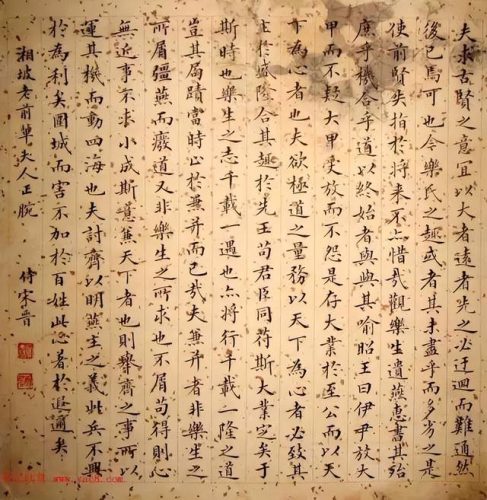 夫求古賢之意宜以大者遠者先之必迂迴而難通然
後已焉可也今樂氏之趣或者其未盡乎而多劣之是
使前賢失指於將來不亦惜哉觀樂生遺燕惠書其殆
庶乎機合乎道以終始者與與其喻昭王曰伊尹放大
甲而不疑大甲受放而不怨是存大業於至公而以天
下為心者也夫欲極道之量務以天下為心者必致其
主於盛隆合其趣於先王苟君臣同符斯大業定矣于
斯時也樂生之志千載一遇也亦將行千載一隆之道
豈其局蹟當時止於兼并而已哉夫兼并者非樂生之
所屑彊燕而廢道又非樂生之所求也不屑苟得則心
無近事不求小成斯意兼天下者也則舉齊之事所以
運其機而動四海也夫討齊以明燕主之義此兵不興
於為利矣圍城而害不加於百姓此心著於遐邇矣
湘坡老前輩大人正腕 侍宋晋
www.yac8.com